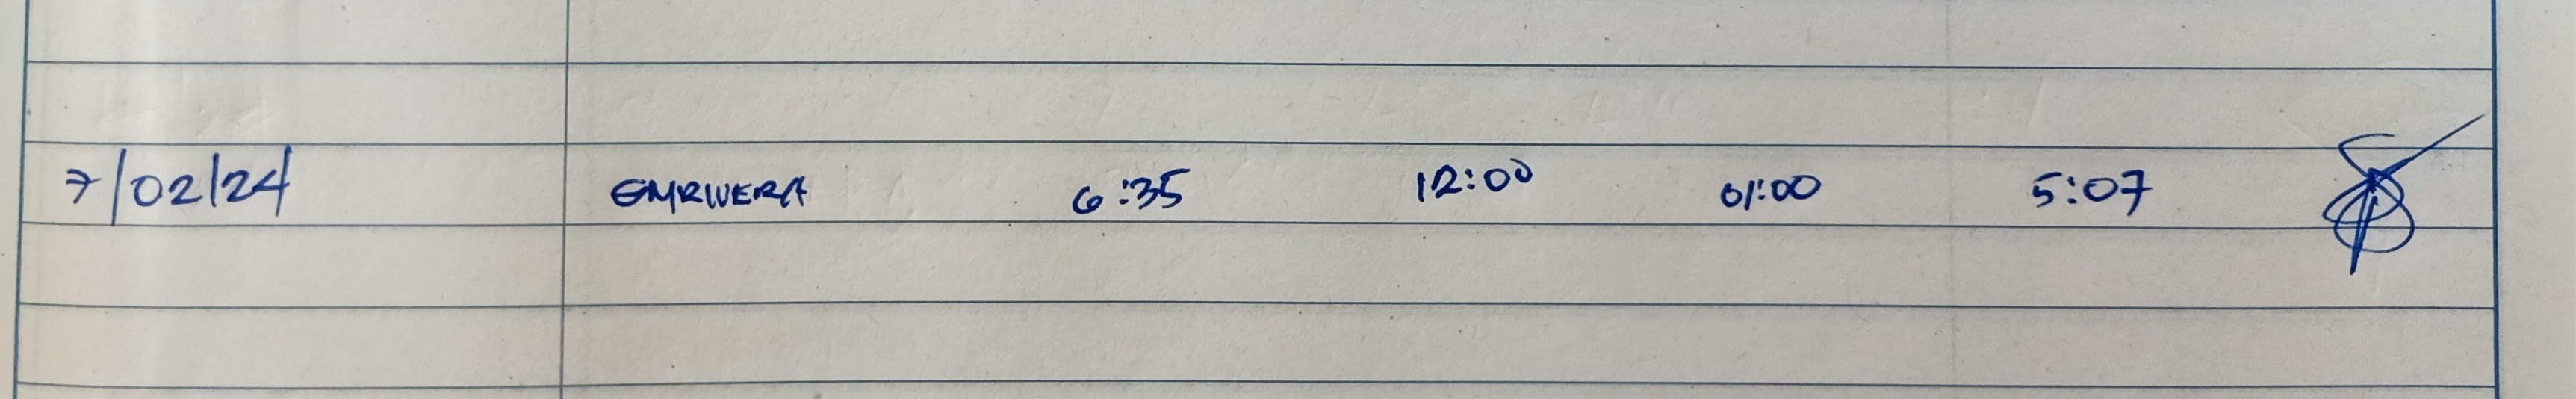 7/02/24 GMRIVERA 6:35 12:00 01:00 5:07